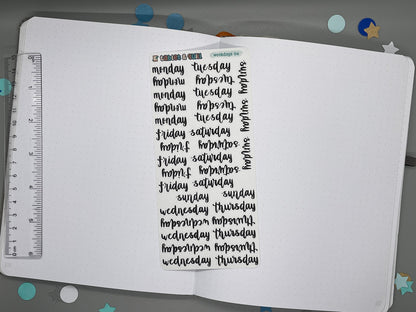 weekdays 04
monday tuesday
monday tuesday
monday tuesday
monday tuesday
monday tuesday
friday saturday
friday saturday
friday saturday
friday saturday
friday saturday
sunday sunday sunday
sunday sunday
wednesday thursday
wednesday thursday
wednesday thursday
wednesday thursday
wednesday thursday